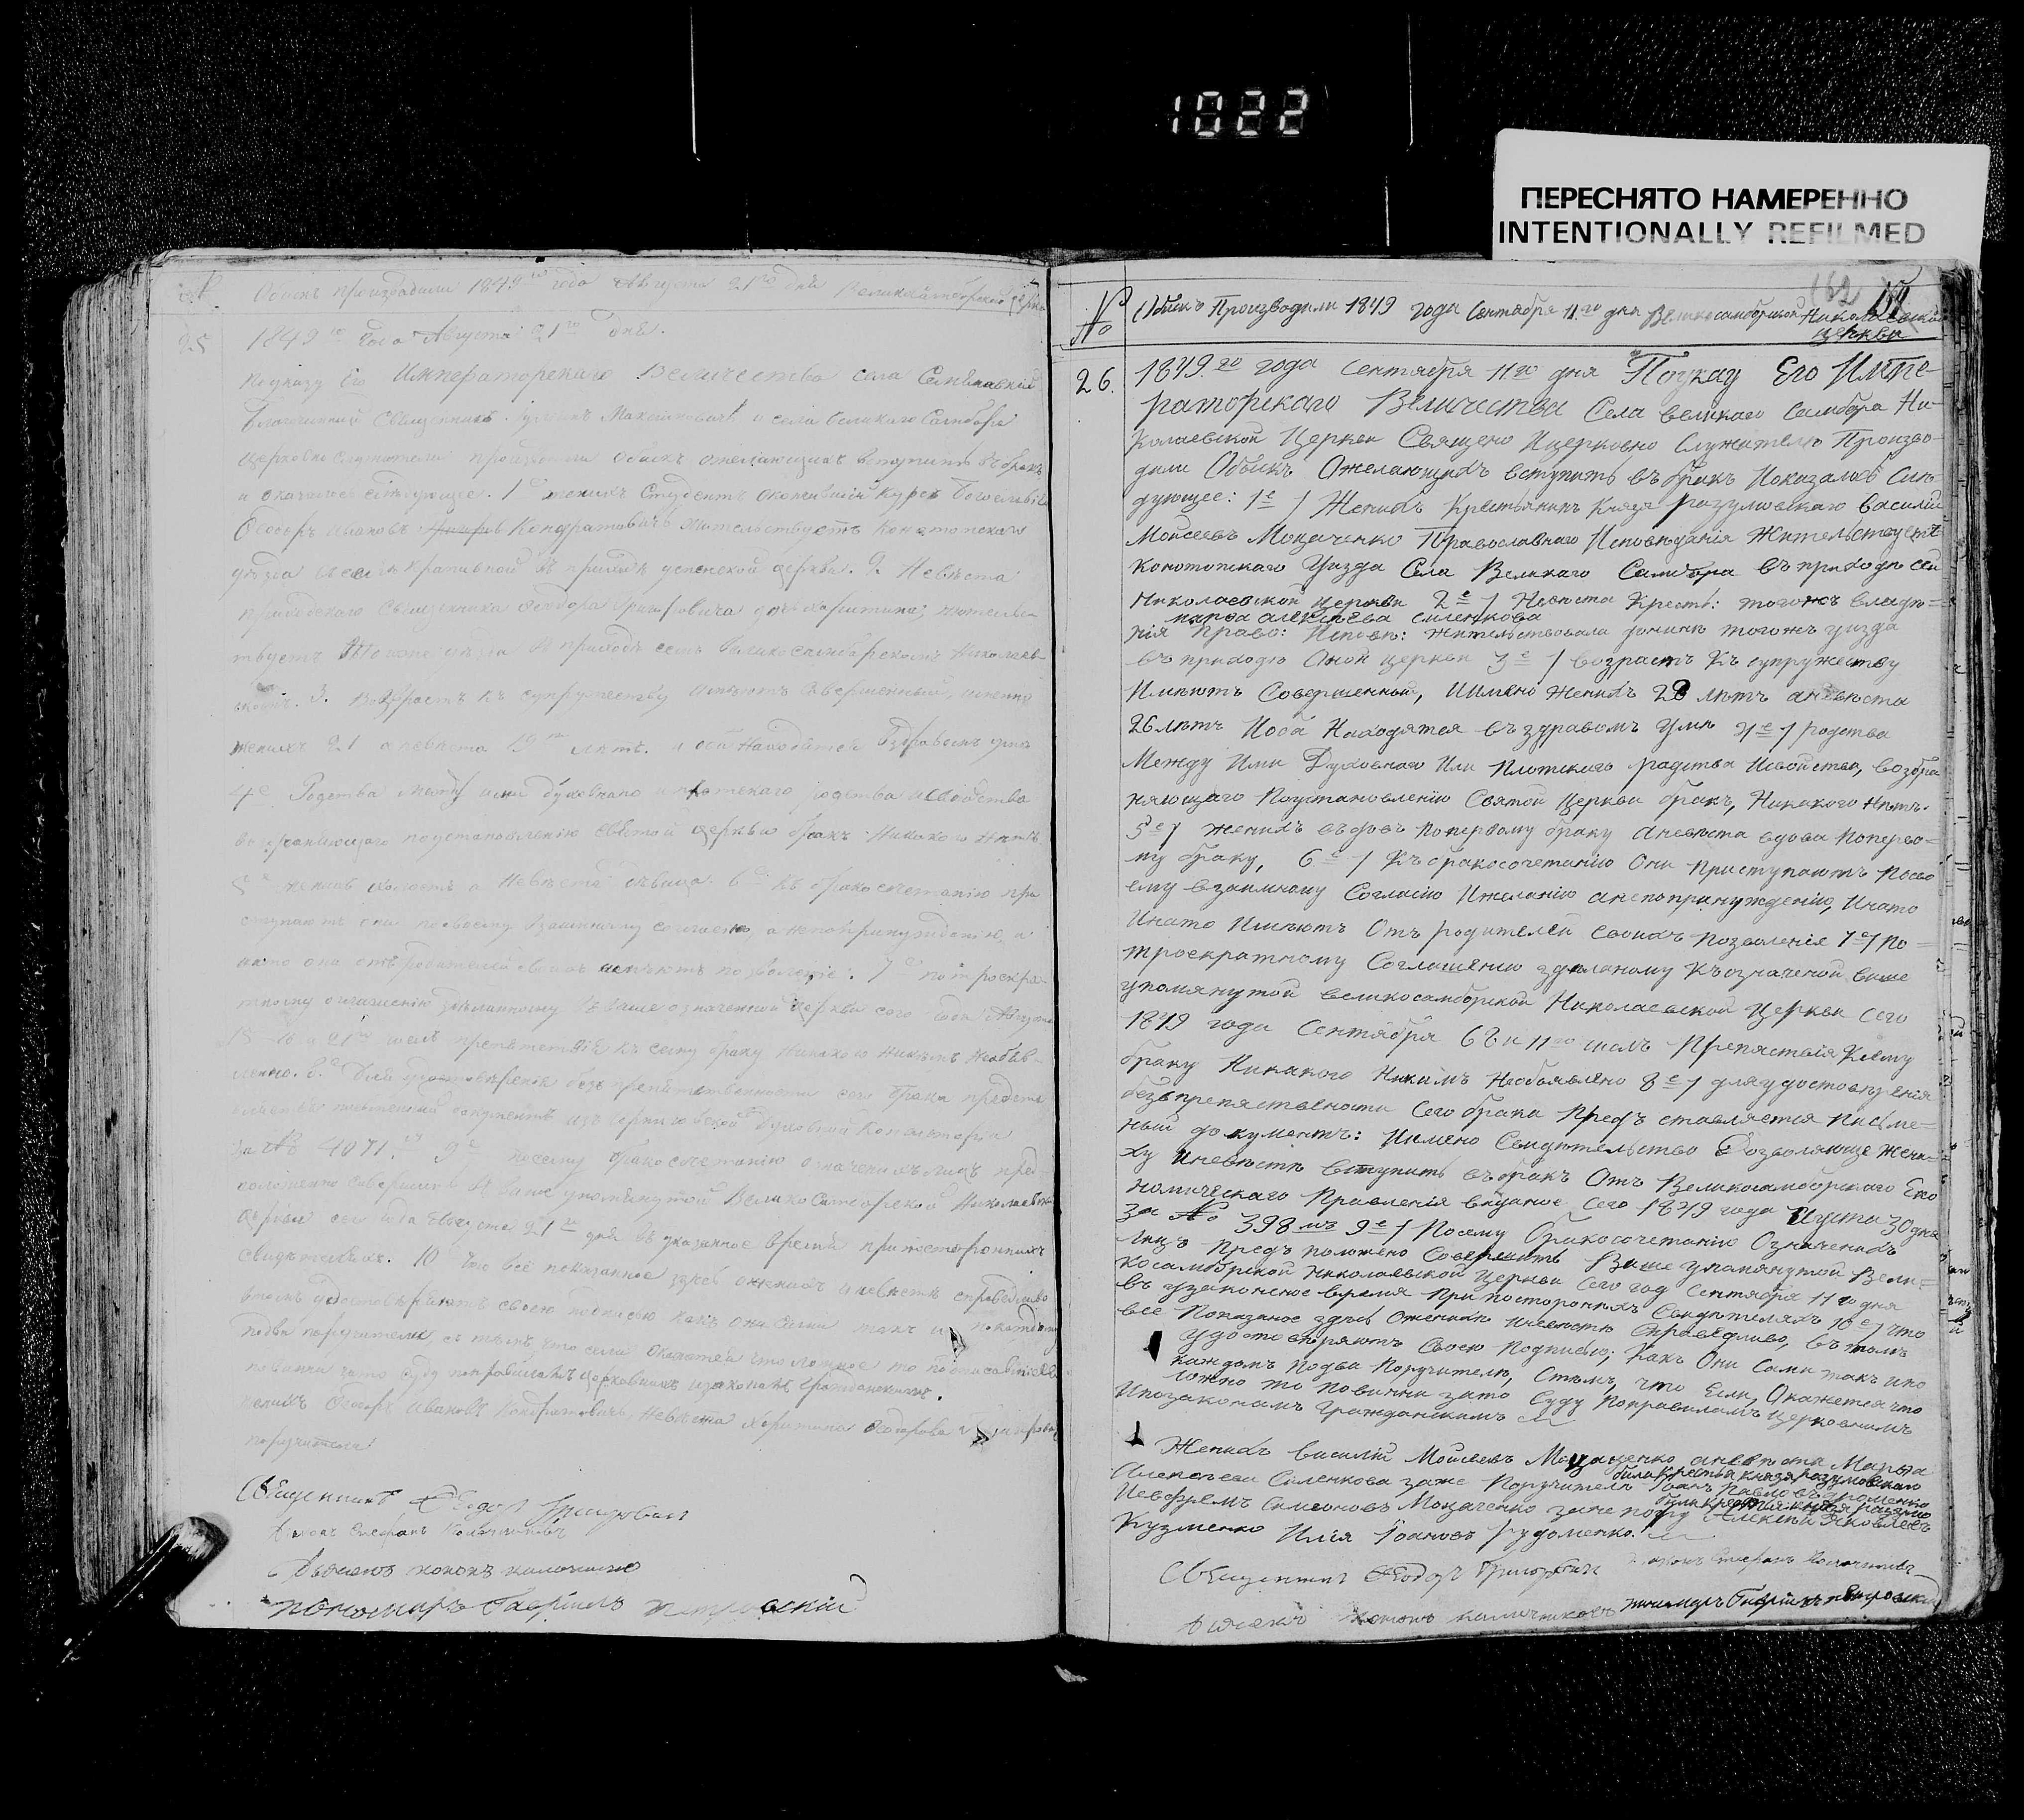 1022
ПЕРЕСНЯТО НАМЕРЕННО
INTENTIONALLY REFILMED
Обыскъ производили 1849 го года Августа 21 го дня Великосамборской
25
1849 го года Августа 21 го дня.
Поуказу Его Императорскаго Величества села
Благочинный Священникъ и села Великаго Самбора
церковно служители производили Обыскъ ожелающихъ вступить въ бракъ
и оказалось следующее. 1 е женихъ Студентъ окончившій Курсъ
Феодоръ Ивановъ Кондратовичъ жительствуетъ Конотопскаго
уезда села Крапивной въ приходе успенской церкви. 2. Невѣста
Священника Феодора Григоровича дочь Харитина, жительс-
твуетъ въ приходе семъ Великосамборскомъ Николаев-
3. возрастъ къ супружеству имеютъ Совершенный, именно
женихъ 21 а невѣста 19 летъ. и оба Находятся вздравомъ уме
4 е Родства между ими духовнаго и плотскаго родства и свойства
возбраняющаго поустановленію святой церкви бракъ Никакого Нетъ
5 женихъ холостъ а Невѣста девица. 6 е къ бракосочетанію при
ступаютъ они посвоему Взаимному согласію, а непопринужденію, и
нато они отъ родителей своихъ имеютъ позволеніе. 7 е потроекра-
тному оглашенію зделанному въ выше означенной церкви сего года Августа
препятствія къ сему браку Никакого Никемъ Необъяв-
лено. 8 е Для удостовѣренія безпрепятственности сего брака предста
письменный документъ изъ Черниговской Духовной Консисторіи
за № 4071. 9 е посему бракосочетанію означенныхъ лицъ пред-
положено Совершить въ выше упомянутой Великосамборской Николаевской
церкви сего года Августа 21 го дня въ указанное время при постороннихъ
свидетеляхъ. 10 что всё показанное здесь о женихе и невѣсте справедливо
втомъ удостоверяютъ своею подписью какъ они сами такъ и покаждому
подва поручителя, с темъ, что если окажется что ложное то подписавшіеся
повинны зато суду поправиламъ церковнымъ изаконамъ гражданскимъ.
женихъ Феодоръ Ивановъ Кондратовичъ, Невѣста Харитина Феодорова
поручители
Священникъ Феодоръ Григоровичъ
Діаконъ Стефанъ
Дьячокъ кононъ
пономарь Гавріилъ Петровскій
№
Обыскъ Производили 1849 года Сентября 11 го дня Великосамборской Николаевской
церкви
26.
1849 го года Сентября 11 го дня Поуказу Его Импе-
раторскаго Величества Села великаго Самбора Ни-
колаевской Церкви Священо Ицерковно Служители Произво-
дили Обыскъ Ожелающихъ вступить въ бракъ Показалось Сле
дующее: 1 е / Женихъ Крестьянинъ Князя Разумовскаго василій
Мойсеевъ Моцаченко Православнаго Исповеданія Жительствуетъ
Конотопскаго Уезда Села Великаго Самбора въ приходе сей
Николаевской церкви 2 е / Невеста Крест: тогожъ владе=
марфа алексѣева силенкова
нія Право: Испове: жительствовала доныне тогожъ уезда
въ приходе Оной церкви 3 е / возрастъ къ супружеству
Имеютъ Совершенный, Иимено женихъ 28 летъ аневеста
26 летъ Иоба Находятся въ здравомъ Уме 4 е / родства
Между Ими Духовнаго Или Плотскаго родства Исвойства, возбра
няющаго Поустановленію Святой Церкви бракъ, Никакого Нетъ.
5 е / женихъ вдовъ поперьвому браку аневеста вдова поперьво=
му браку, 6 е / Къ бракосочетанію Они приступаютъ посво
ему взаимному Согласію Ижеланію анепопринужденію, Инато
Инато Имеютъ Отъ родителей своихъ позволенія 7 е / По=
троекратному Соглашенію зделаному Къозначеной выше
упомянутой великосамборской Николаевской Церкви Сего
1849 года Сентября 6 8 и 11 го числъ Препятствія Ксему
браку Никакого Никимъ Необъявлено 8 е / для удостовѣренія
безпрепяствености Сего брака Предъ ставляется Письме=
ный документъ: Иимено Свидѣтельство Дозволяюще жени=
ху Иневесте вступить въ бракъ Отъ Великосамборскаго Еко
номическаго Правленія выданое Сего 1849 года Августа 30 дня
За № 398 мъ 9 е / Посему Бракосочетанію Означенихъ
Лицъ Предъ положено Совершить Выше упомянутой Вели=
косамборской Николаевской Церкви Сего год Сентября 11 го дня
въ узаконеное время При постороннихъ Свидетеляхъ 10 е / что
все Показаное здесь Оженихе Иневесте Справедливо, въ томъ
удостоверяютъ Своею Подписью; какъ Они Сами такъ ипо
каждомъ подва Поручителю, Стемъ, что Если, Окажется что
ложно то повинни зато Суду Поправиламъ церковнимъ
Ипозаконамъ Гражданскимъ
Женихъ василій Мойсеевъ Моцаченко аневеста Марфа
Алексеева Силенкова заже Поручители Иванъ Павловъ
были крестья князя разумовскаго
Иевфремъ Симеоновъ Моцаченко заже пору Алексѣй Яковлевъ
Кузменко Илія Іоановъ Рудоменко.
Священникъ Феодоръ Григоровичъ Діаконъ Стефанъ
Дьячокъ Кононъ пономарь Гавріилъ петровскій